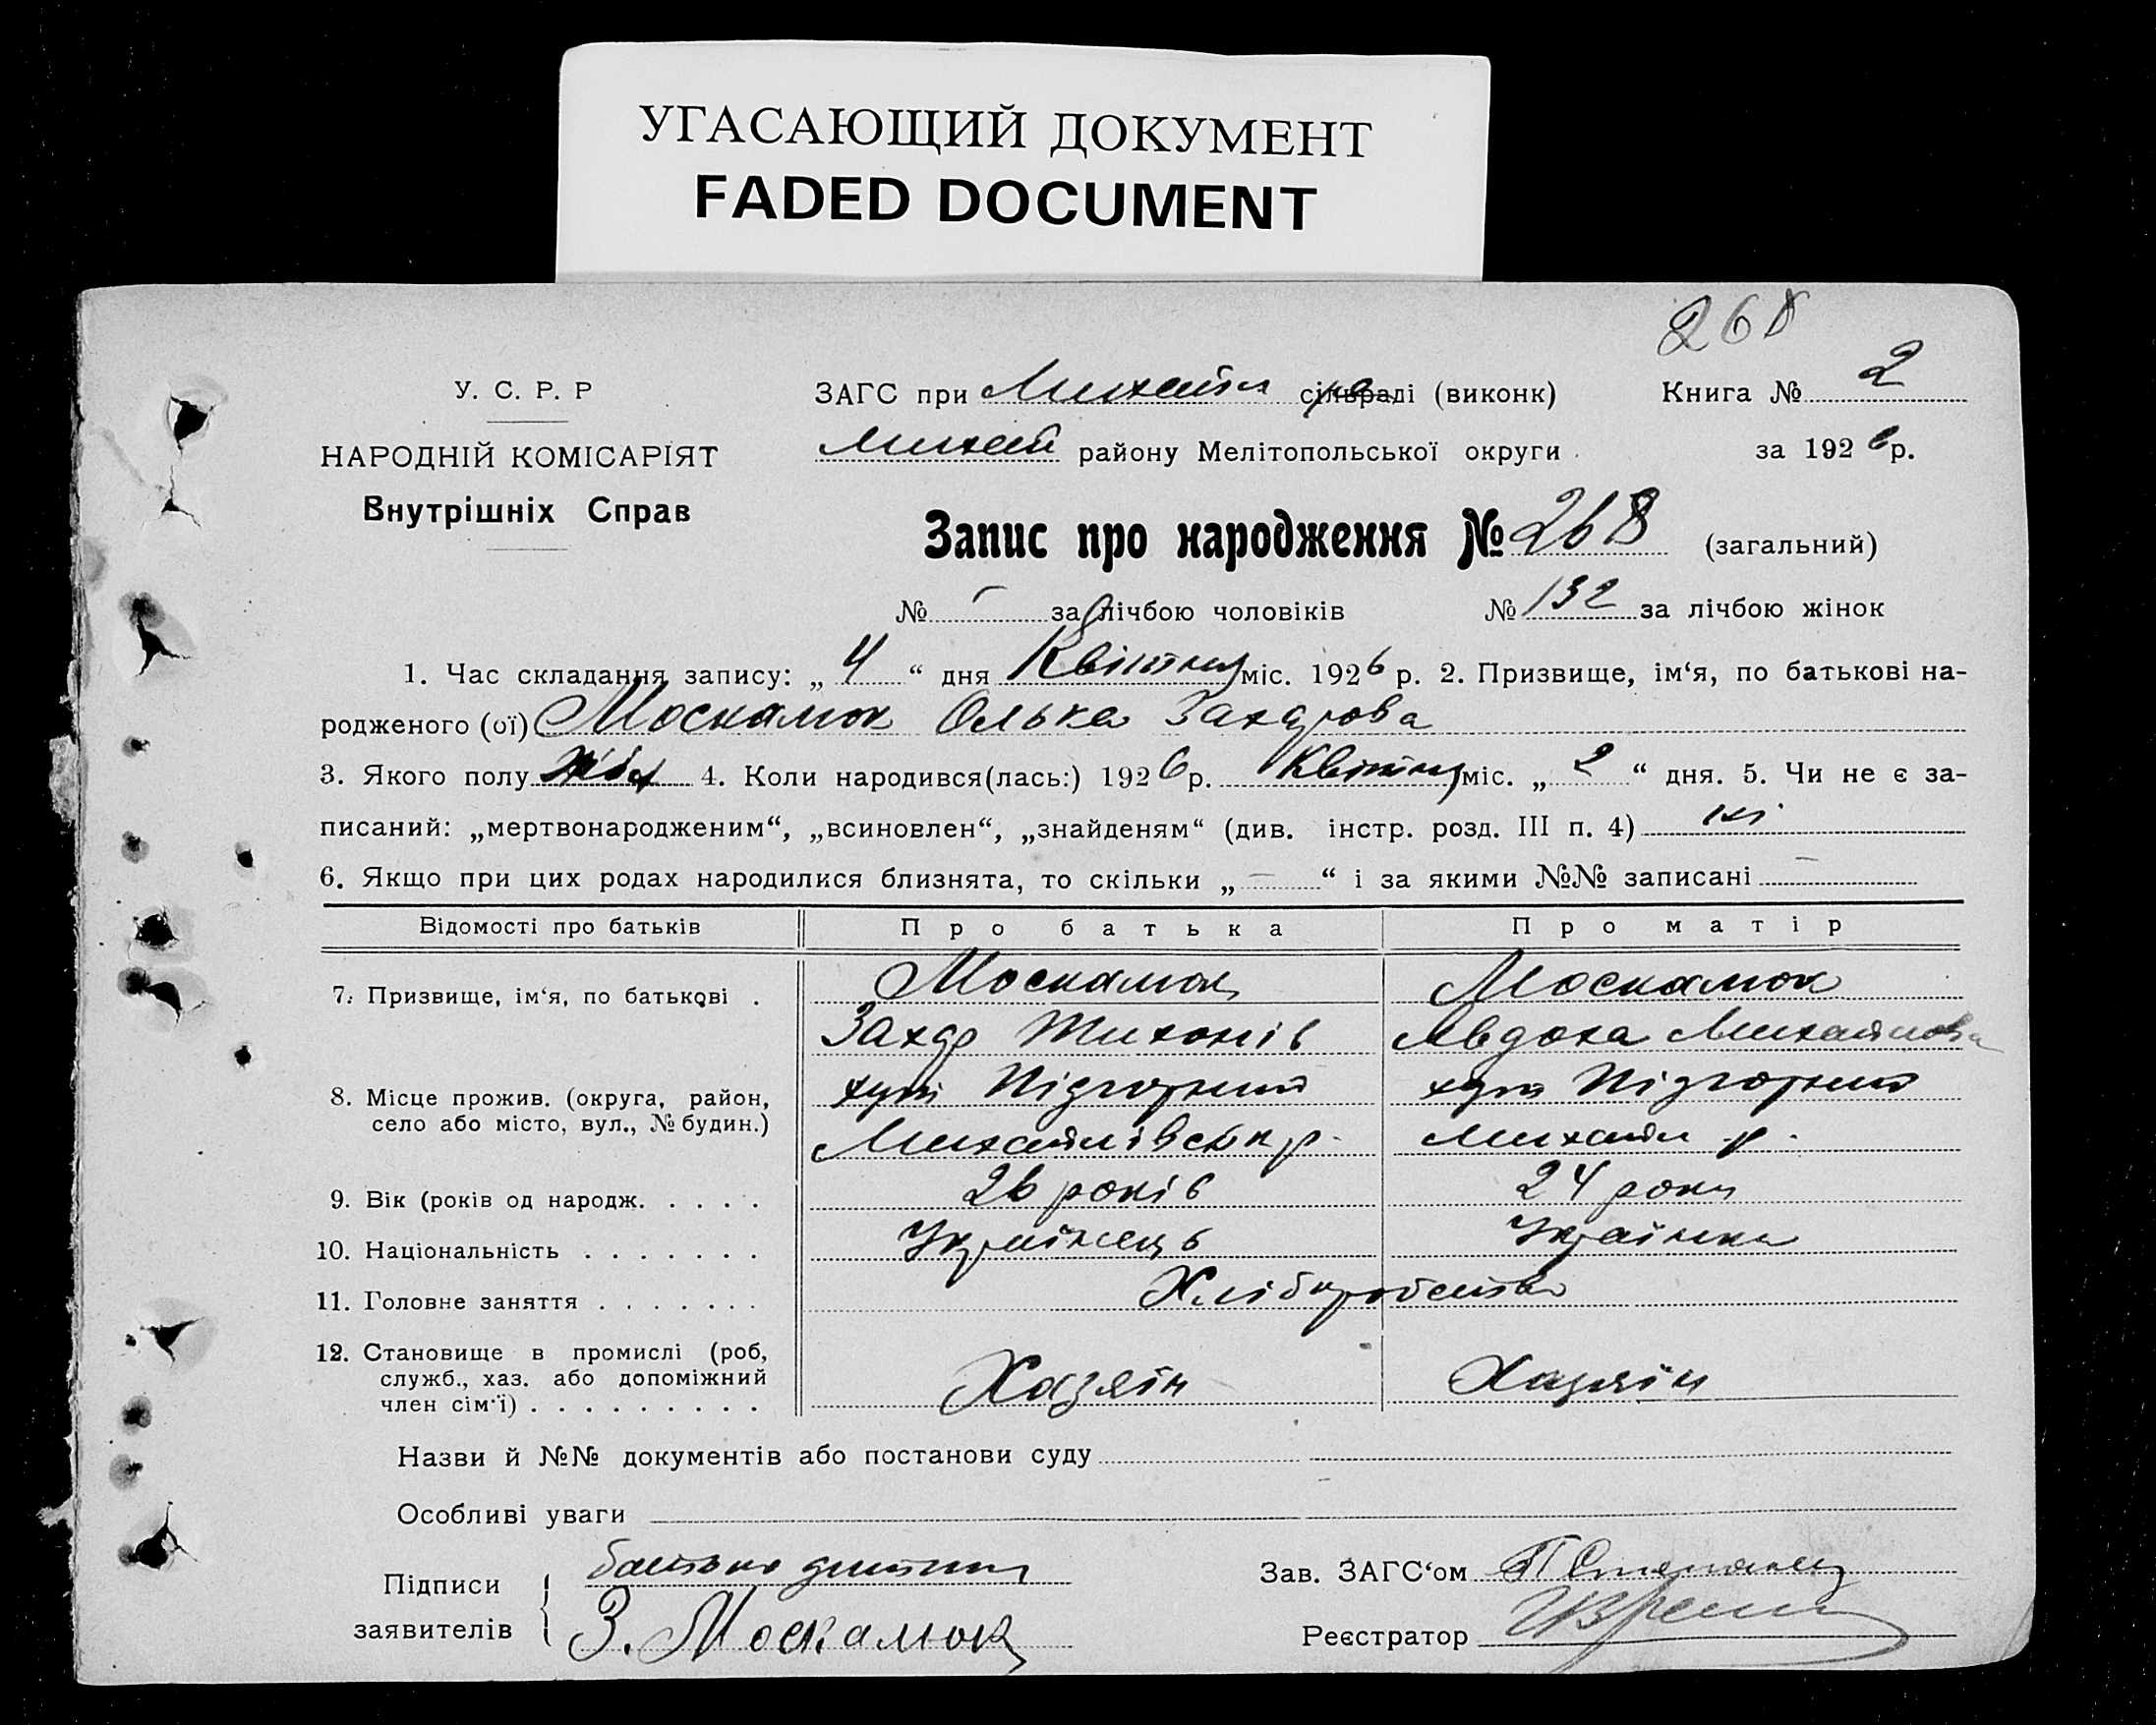 УГАСАЮЩИЙ ДОКУМЕНТ
FADED DOCUMENT
268
У. С. Р. Р
НАРОДНІЙ КОМІСАРІЯТ
Внутрішніх Справ
ЗАГС при Михайл сільраді (виконк)
Михай району Мелітопольської округи
Книга № 2
за 1926 р.
Запис про народження № 268 (загальний)
№ - за лічбою чоловіків № 132 за лічбою жінок
1. Час складання запису: „ 4 “ дня Квітня міс. 1926 р. 2. Призвище, ім‘я, по батькові на-
родженого (ої) Москалюк Олька Захарова
3. Якого полу 4. Коли народився(лась:) 1926 р. Квітня міс. „ 2 “ дня. 5. Чи не є за-
писаний: „мертвонародженим“, „всиновлен“, „знайденям“ (див. інстр. розд. III п. 4) ні
6. Якщо при цих родах народилися близнята, то скільки „ — “ і за якими №№ записані —
Відомості про батьків Про батька Про матір
7. Призвище, ім‘я, по батькові . Москалюк Москалюк
Захар Тихонів Явдоха Михайлова
8. Місце прожив. (округа, район, хут Підгорний хут Підгорний
село або місто, вул., № будин.) Михайлівськ р. Михайл р.
9. Вік (років од народж. . . . . 26 років 24 роки
10. Національність . . . . . . . Українець Українка
11. Головне заняття . . . . . . . Хліборобство
12. Становище в промислі (роб,
служб., хаз. або допоміжний
член сім‘ї) . . . . . . . . . Хазяїн Хазяїн
Назви й №№ документів або постанови суду
Особливі уваги
Підписи заявителів
батько дитини
З. Москалюк
Зав. ЗАГС‘ом
Реєстратор